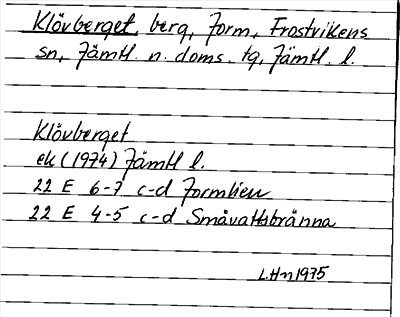 Klövberget, berg, Form, Frostvikens
sn, Jämtl. n. doms. tg, Jämtl. l.
Klövberget
ek (1974) Jämtl l.
22 E 6-7 c-d Formlien
22 E 4-5 c-d Småvattsbränna
L.Hn 1975